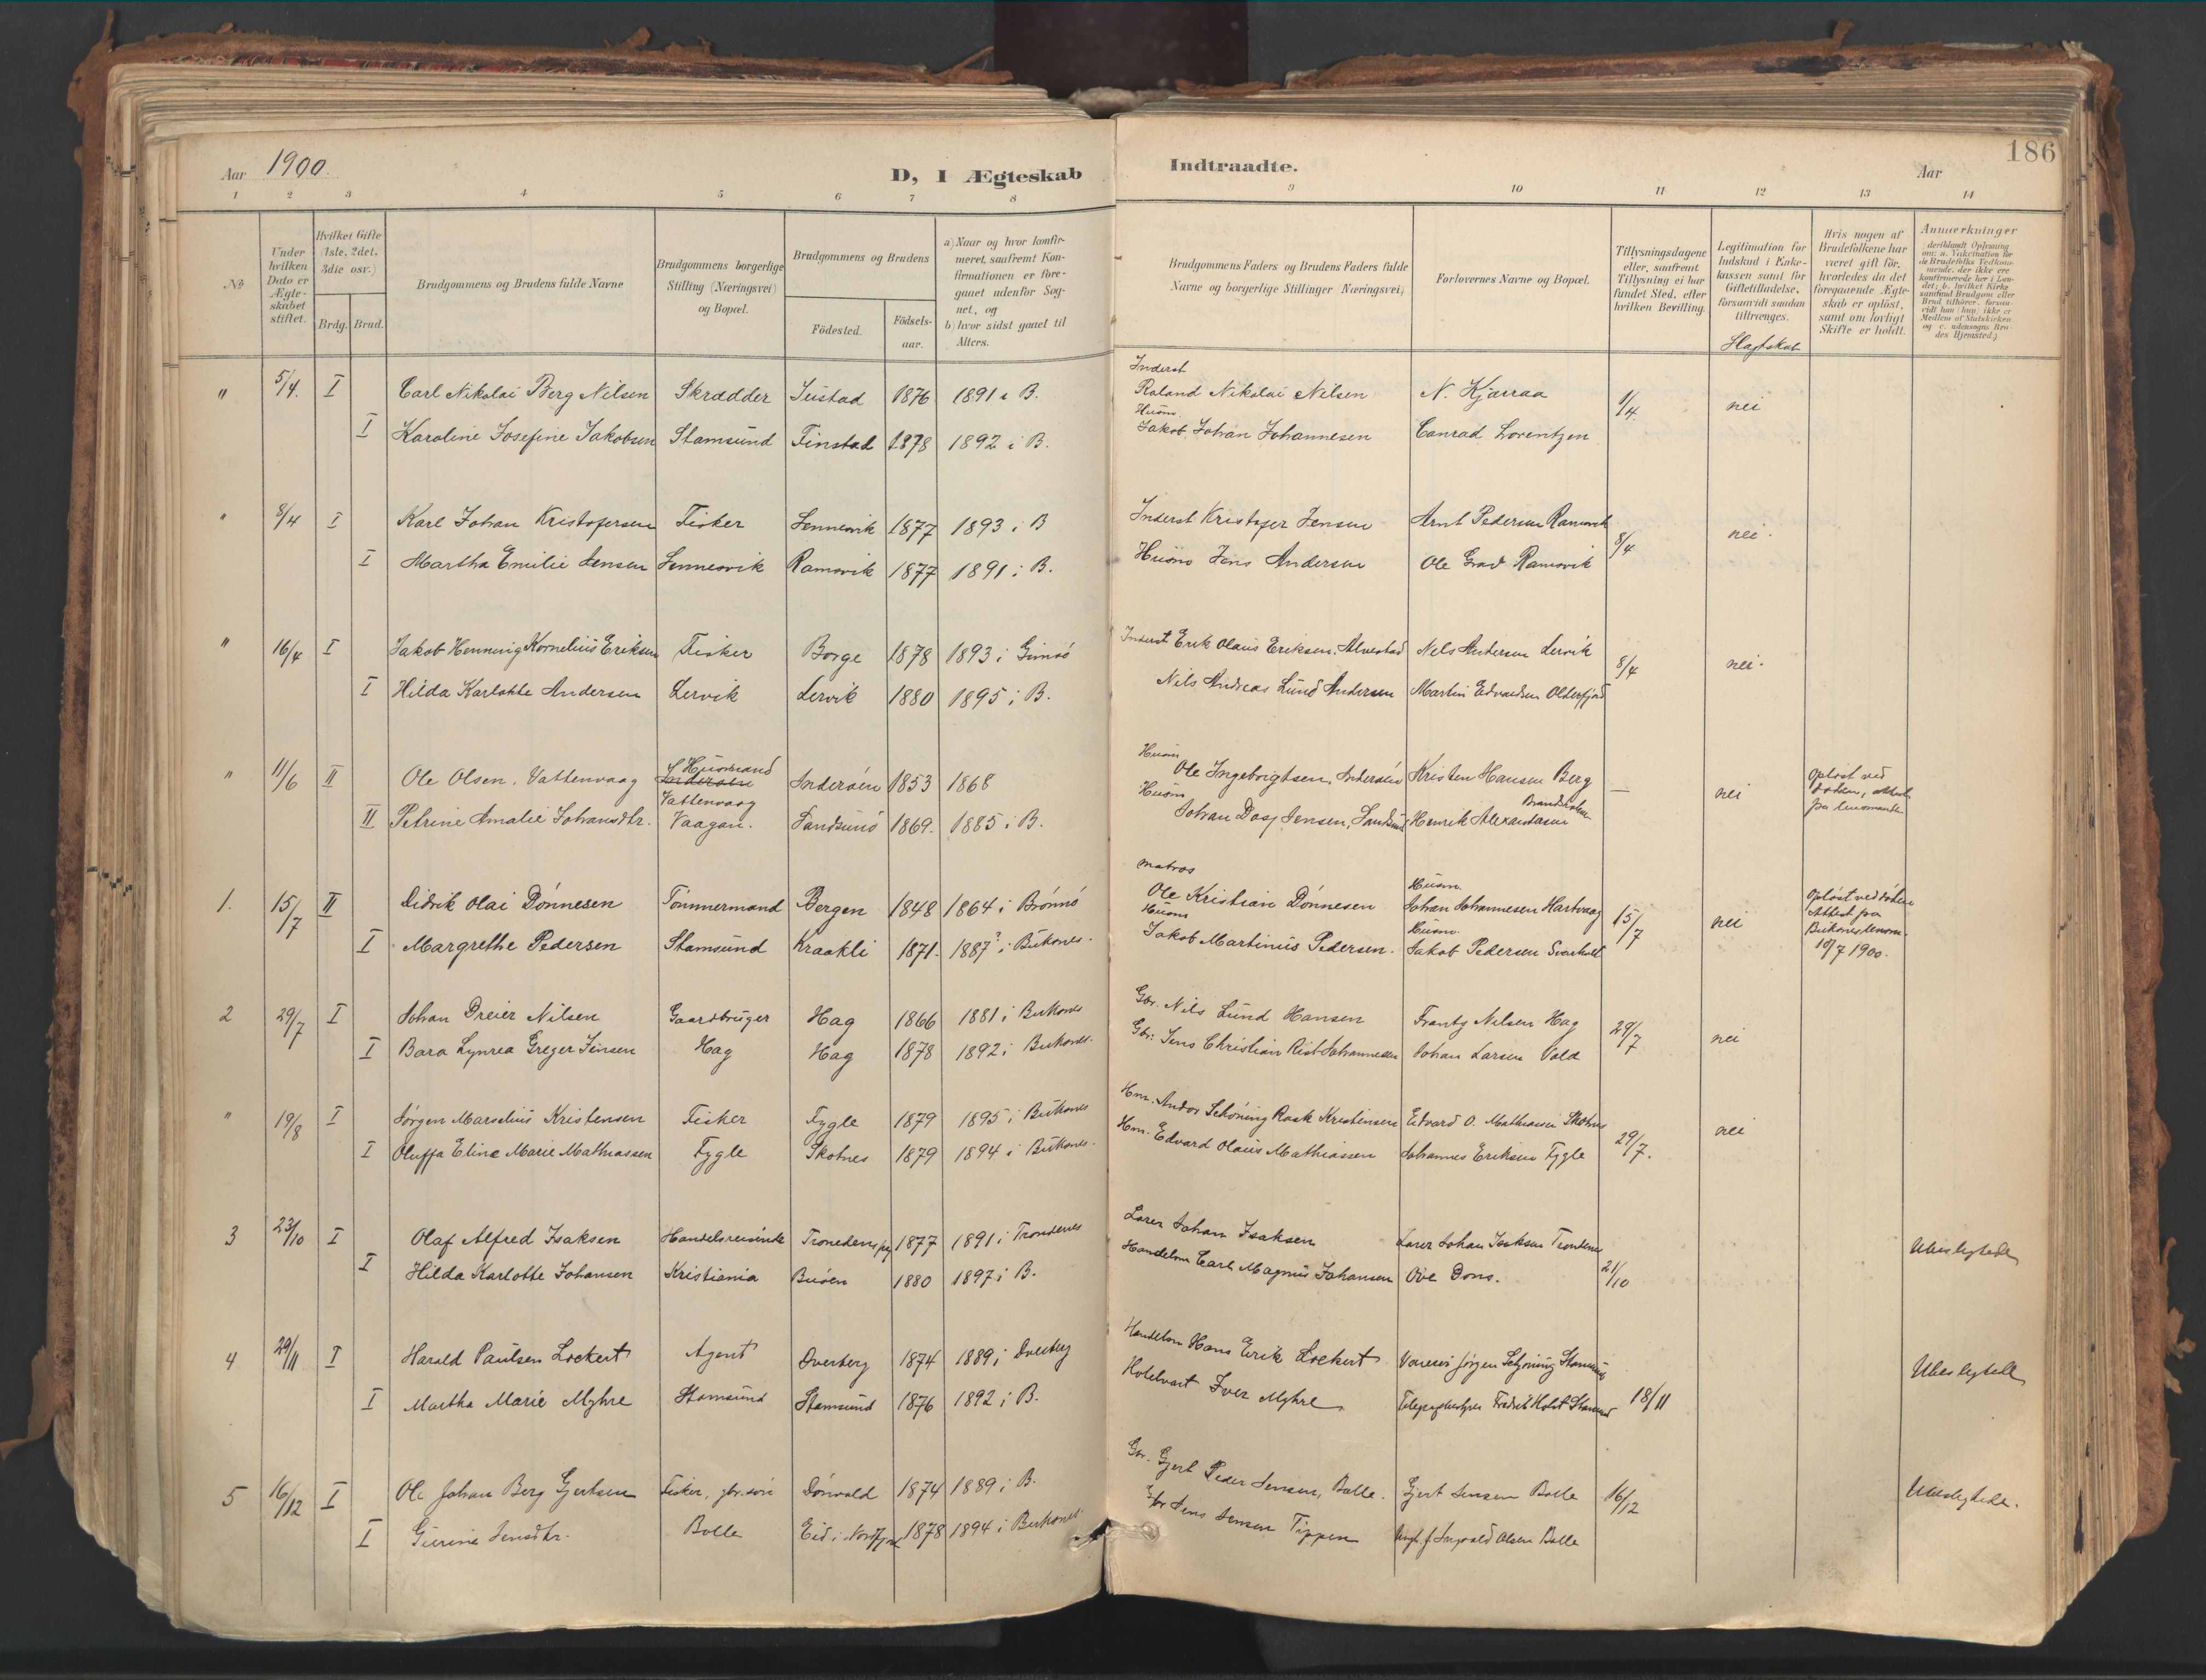 Aar 1900. D, I Ægteskab Indtraadte. Aar 186
1 2 3 4 5 6 7 8 9 10 11 12 13 14
№
Under hvilken Dato er Ægteskabet stiftet.
Hvilket Gifte (1ste, 2det, 3die osv.)
Brdg. Brud.
Brudgommens og Brudens fulde Navne
Brudgommens borgerlige Stilling (Næringsvei) og Bopæl.
Brudgommens og Brudens
Födested.
Födselsaar.
a) Naar og hvor konfirmeret, saafremt Konfirmationen er foregaaet udenfor Sognet, og
b) hvor sidst gaaet til Alters.
Brudgommens Faders og Brudens Faders fulde Navne og borgerlige Stillinger Næringsvei)
Forlovernes Navne og Bopæl.
Tillysningsdagene eller, saafremt Tillysning ei har fundet Sted, efter hvilken Bevilling.
Legitimation for Indskud i Enkekassen samt for Giftetilladelse, forsaavidt saadan tiltrænges.
Slagtskab
Hvis nogen af Brudefolkene har været gift för, hvorledes da det foregaaende Ægteskab er oplöst, samt om lovligt Skifte er holdt.
Anmærkninger
" 5/4. I Carl Nikolai Berg Nilsen Skrædder Justad 1876 1891 i B. Inderst Roland Nikolai Nilsen N. Kjærraa 1/4. nei
I Karoline Josefine Jakobsen Stamsund Finstad 1878 1892 i B. Husm. Jakob Johan Johannesen Conrad Lorentzen
" 8/4 I Karl Johan Kristofersen Fisker Sennesvik 1877 1893 i B Inderst Kristofer Jensen Arnt Pedersen Ramsvik 8/4 nei.
I Martha Emilie Jensen Sennesvik Ramsvik 1877 1891 i B. Husm Jens Andersen Ole Grad Ramsvik
" 16/4 I Jakob Henning Kornelius Eriksen Fisker Borge 1878 1893 i Gimsö Inderst Erik Olaus Eriksen, Alvestad Nels Andersen Lervik 8/4 nei.
I Hilda Karlotte Andersen Lervik Lervik 1880 1895 i B. Nils Andreas Lund Andersen Martin Edvardsen Olderfjord
" 11/6 II Ole Olsen, Vattenvaag Husmand Vattenvaag Inderöen 1853 1868 Husm Ole Ingebrigtsen, Inderöen Kristen Hansen Berg — nei Oplöst ved
II Petrine Amalie Johansdtr. Vaagan. Sandsund 1869. 1885 i B. Husm Johan Daas Jensen, Sandsund Henrik Alexandersen
1. 15/7 II Didrik Olai Dönnesen Tömmermand Bergen 1848 1864 i Brönnö Matros Ole Kristian Dönnesen Husm. Johan Johannesen Hartvaag 15/7 nei Oplöst ved döden Attest fra
I Margrethe Pedersen Stamsund Kraakli 1871. 1887? i Buksnes. Husm Jakob Martinus Pedersen. Husm. Jakob Pedersen Svarholt 18/7 1900.
2 29/7 I Johan Dreier Nilsen Gaardbruger Hag 1866 1881 i Buksnes Gbr. Nils Lund Hansen Frantz Nilsen Hag 29/7 nei
I Bara Lynrea Greger Jensen Hag Hag 1878 1892 i Buksnes. Gbr. Jens Christian Rist Johannesen Johan Larsen Vold
" 19/8 I Jörgen Marselius Kristensen Fisker Fygle 1879 1895 i Buksnes Hm. Andor Schöning Rask Kristensen Edvard O. Mathiassen Skotnes 29/7. nei
I Oluffa Eline Marie Mathiassen Fygle Skotnes 1879 1894 i Buksnes. Hm. Edvard Olaus Mathiassen Johannes Eriksen Fygle
3 23/10 I Olaf Alfred Isaksen Handelsreisende Tronedens pg 1877 1891 i Trondenes Lærer Johan Isaksen Lærer Johan Isaksen Trondenes 21/10 Ubeslegtede
I Hilda Karlotte Johansen Kristiania Buöen 1880 1897 i B. Handelsm Carl Magnus Johansen Ove Dons.
4 29/11 I Harald Paulsen Lockert Agent Dverberg 1874 1889 i Dverberg Handelsm Hans Erik Lockert Jörgen Schjöning Stamsund 18/11 Ubeslegtede
I Martha Marie Myhre Stamsund Stamsund 1876 1892 i B. Hotelvært Iver Myhre Telegrafbestyrer Fredrik Holst Stamsund
5 16/12 I Ole Johan Berg Gjertsen Fisker, gbr. sön Dönvold 1874 1889 i B. Gbr. Gjert Peder Jensen, Bolle. Gjert Jensen Bolle 16/12 Ubeslegtede.
I Gurine Jensdtr. Bolle Eid i Nordfjord 1878 1894 i Buksnes. Gbr Jens Jensen Tippen Ingvald Olsen Bolle